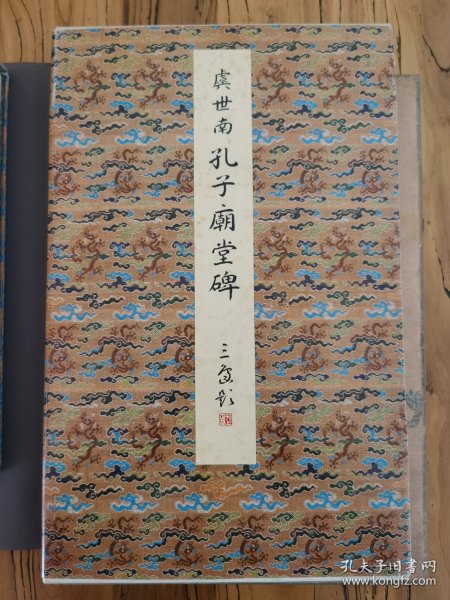 虞世南 孔子廟堂碑
三
孔夫子旧书网
www.kongfz.com